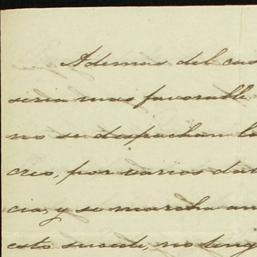 Ademas del cas
seria mas favorable
no se despachan l
creo, por varios da
cia, y se marcha an
esto sucede, no teng